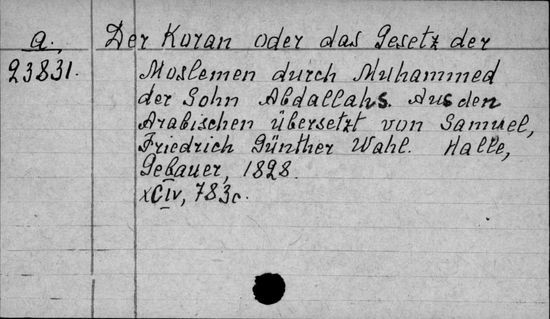 a. Der Koran oder das Gesetz der
23831. Moslemen durch Muhammed
der Sohn Abdallahs. Aus den
Arabischen übersetzt von Samuel,
Friedrich Günther Wahl. Halle,
Gebauer, 1828.
XCIV, 783c.